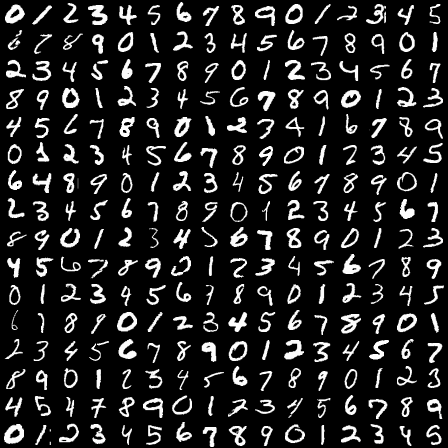 0 1 2 3 4 5 6 7 8 9 0 1 2 3 4 5
6 7 8 9 0 1 2 3 4 5 6 7 8 9 0 1
2 3 4 5 6 7 8 9 0 1 2 3 4 5 6 7
8 9 0 1 2 3 4 5 6 7 8 9 0 1 2 3
4 5 6 7 8 9 0 1 2 3 4 1 6 7 8 9
0 1 2 3 4 5 6 7 8 9 0 1 2 3 4 5
6 4 8 9 0 1 2 3 4 5 6 7 8 9 0 1
2 3 4 5 6 7 8 9 0 1 2 3 4 5 6 7
8 9 0 1 2 3 4 5 6 7 8 9 0 1 2 3
4 5 6 7 8 9 0 1 2 3 4 5 6 7 8 9
0 1 2 3 4 5 6 7 8 9 0 1 2 3 4 5
6 7 8 9 0 1 2 3 4 5 6 7 8 9 0 1
2 3 4 5 6 7 8 9 0 1 2 3 4 5 6 7
8 9 0 1 2 3 4 5 6 7 8 9 0 1 2 3
4 5 4 7 8 9 0 1 2 3 4 5 6 7 8 0
0 1 2 3 4 5 6 7 8 9 0 1 2 3 4 6